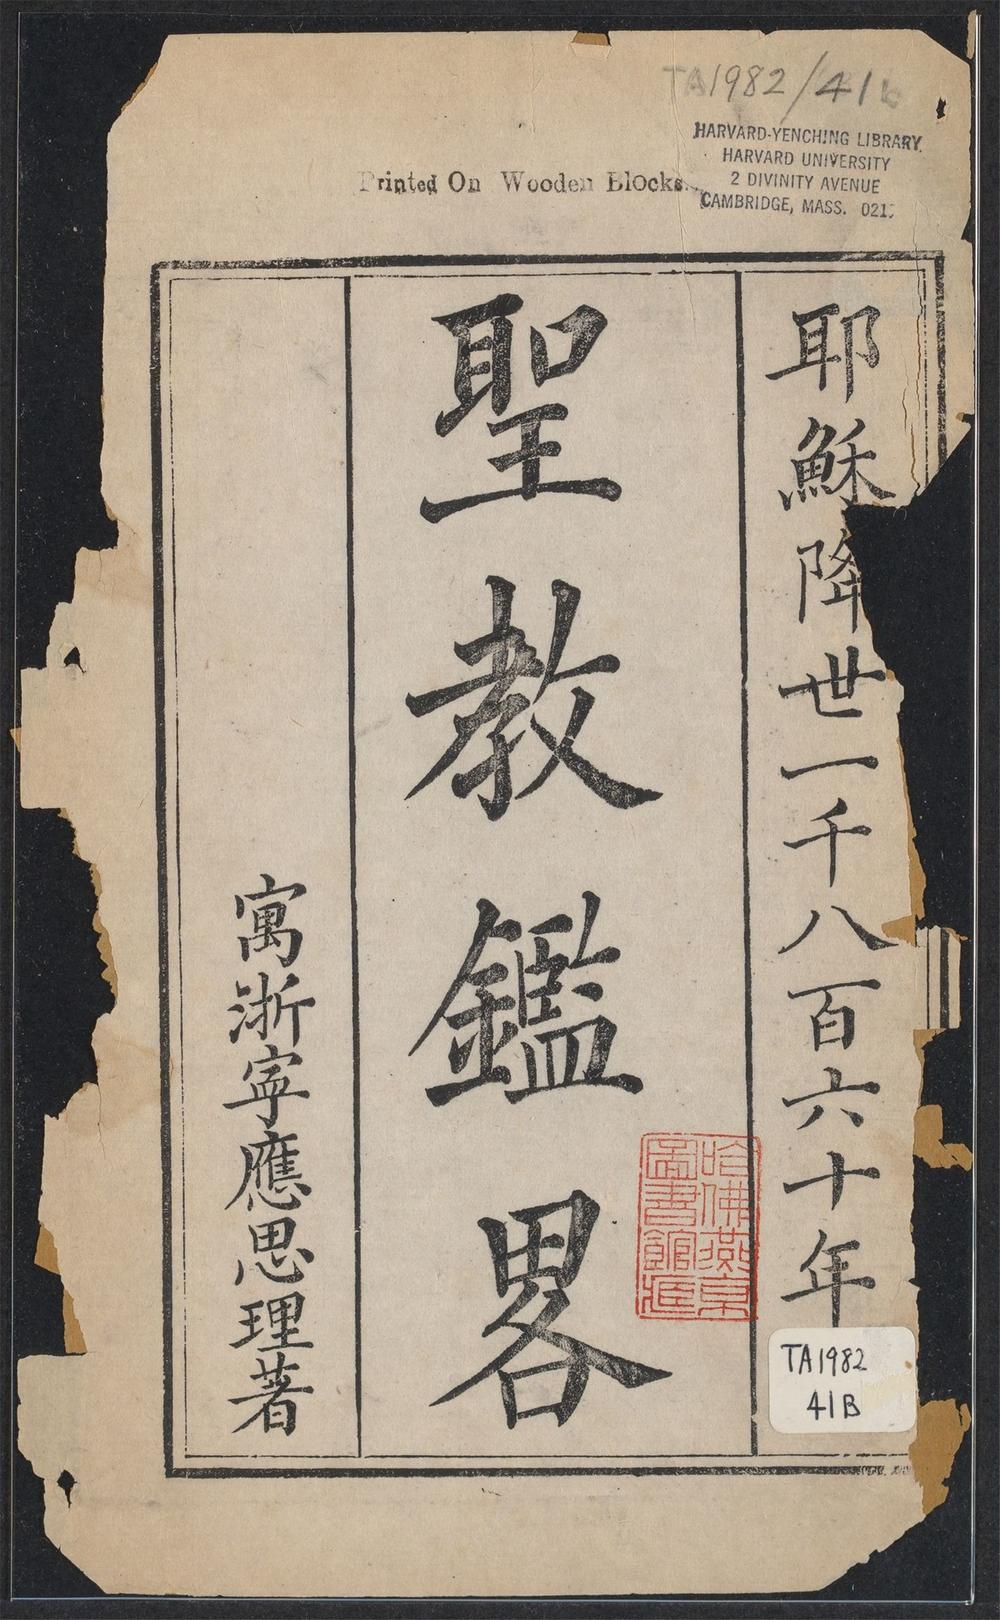 TA1982/41b
HARVARD-YENCHING LIBRARY
HARVARD UNIVERSITY
2 DIVINITY AVENUE
CAMBRIDGE, MASS. 021
Printed On Wooden Blocks.
耶穌降世一千八百六十年
聖教鑑畧
寓浙寧應思理著
哈佛燕京
圖書館藏
TA1982
41B